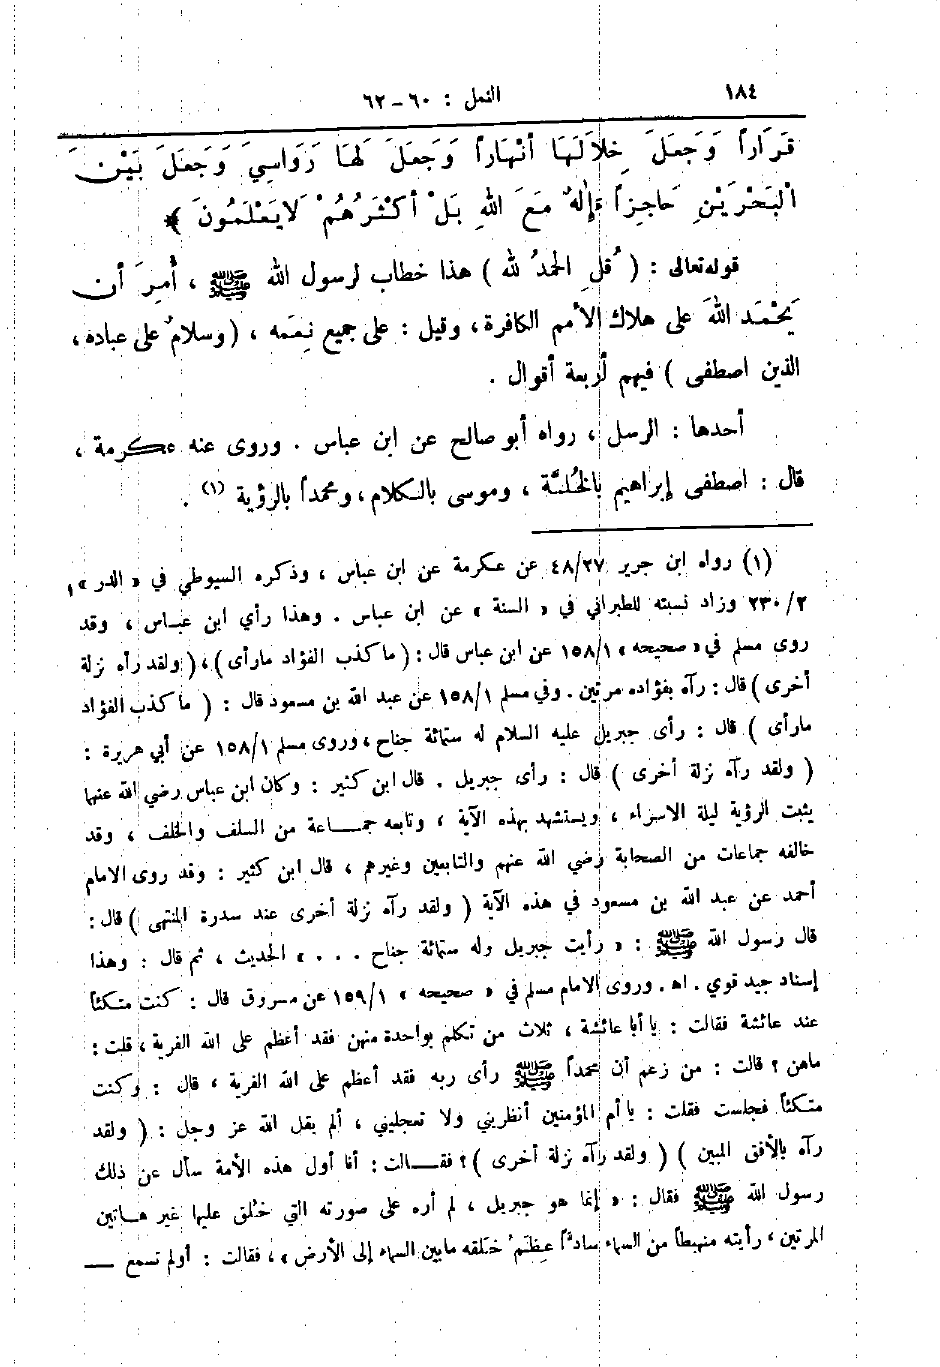 ١٨٤
النمل : ٦٠ – ٦٢
قَرَاراً وَجَعَلَ خِلَالَهَا أَنْهَاراً وَجَعَلَ لَهَا رَوَاسِيَ وَجَعَلَ بَيْنَ
الْبَحْرَيْنِ حَاجِزاً ءَإِلٰهٌ مَعَ اللهِ بَلْ أَكْثَرُهُمْ لَايَعْلَمُونَ ﴾
قوله تعالى : ( قُلِ الحمدُ لله ) هذا خطاب لرسول الله ﷺ ، أُمِرَ أن
يَحْمَد اللهَ على هلاك الأمم الكافرة ، وقيل : على جميع نِعَمه ، ( وسلامٌ على عباده ،
الذين اصطفى ) فيهم أربعة أقوال .
أحدها : الرسل ، رواه أبو صالح عن ابن عباس . وروى عنه عكرمة ،
قال : اصطفى إبراهيم بالخُلَّة ، وموسى بالكلام ، ومحمداً بالرؤية (١) .
(١) رواه ابن جرير ٤٨/٢٧ عن عكرمة عن ابن عباس ، وذكره السيوطي في « الدر » ،
٢٣٠/٢ وزاد نسبته للطبراني في « السنة » عن ابن عباس . وهذا رأي ابن عبـاس ، وقد
روى مسلم في « صحيحه » ١٥٨/١ عن ابن عباس قال : ( ما كذب الفؤاد مارأى ) ، ( ولقد رآه نزلة
أخرى ) قال : رآه بفؤاده مرتين . وفي مسلم ١٥٨/١ عن عبد الله بن مسعود قال : ( ما كذب الفؤاد
مارأى ) قال : رأى جبريل عليه السلام له ستمائة جناح ، وروى مسلم ١٥٨/١ عن أبي هريرة :
( ولقد رآه نزلة أخرى ) قال : رأى جبريل . قال ابن كثير : وكان ابن عباس رضي الله عنهما
يثبت الرؤية ليلة الاسراء ، ويستشهد بهذه الآية ، وتابعه جمـــاعة من السلف والخلف ، وقد
خالفه جماعات من الصحابة رضي الله عنهم والتابعين وغيرهم ، قال ابن كثير : وقد روى الامام
أحمد عن عبد الله بن مسعود في هذه الآية ( ولقد رآه نزلة أخرى عند سدرة المنتهى ) قال :
قال رسول الله ﷺ : « رأيت جبريل وله ستمائة جناح . . . » الحديث ، ثم قال : وهذا
إسناد جيد قوي . اهـ . وروى الامام مسلم في « صحيحه » ١٥٩/١ عن مسروق قال : كنت متكئاً
عند عائشة فقالت : يا أبا عائشة ، ثلاث من تكلم بواحدة منهن فقد أعظم على الله الفرية ، قلت :
ماهن ؟ قالت : من زعم أن محمداً ﷺ رأى ربه فقد أعظم على الله الفرية ، قال : وكنت
متكئاً فجلست فقلت : يا أم المؤمنين أنظريني ولا تعجليني ، ألم يقل الله عز وجل : ( ولقد
رآه بالأفق المبين ) ( ولقد رآه نزلة أخرى ) ؟ فقـــالت : أنا أول هذه الأمة سأل عن ذلك
رسول الله ﷺ فقال : « إنما هو جبريل ، لم أره على صورته التي خُلق عليها غير هـاتين
المرتين ، رأيته منهبطاً من السماء ساداً عِظَمُ خَلقه مابين السماء إلى الأرض » ، فقالت : أولم تسمع —